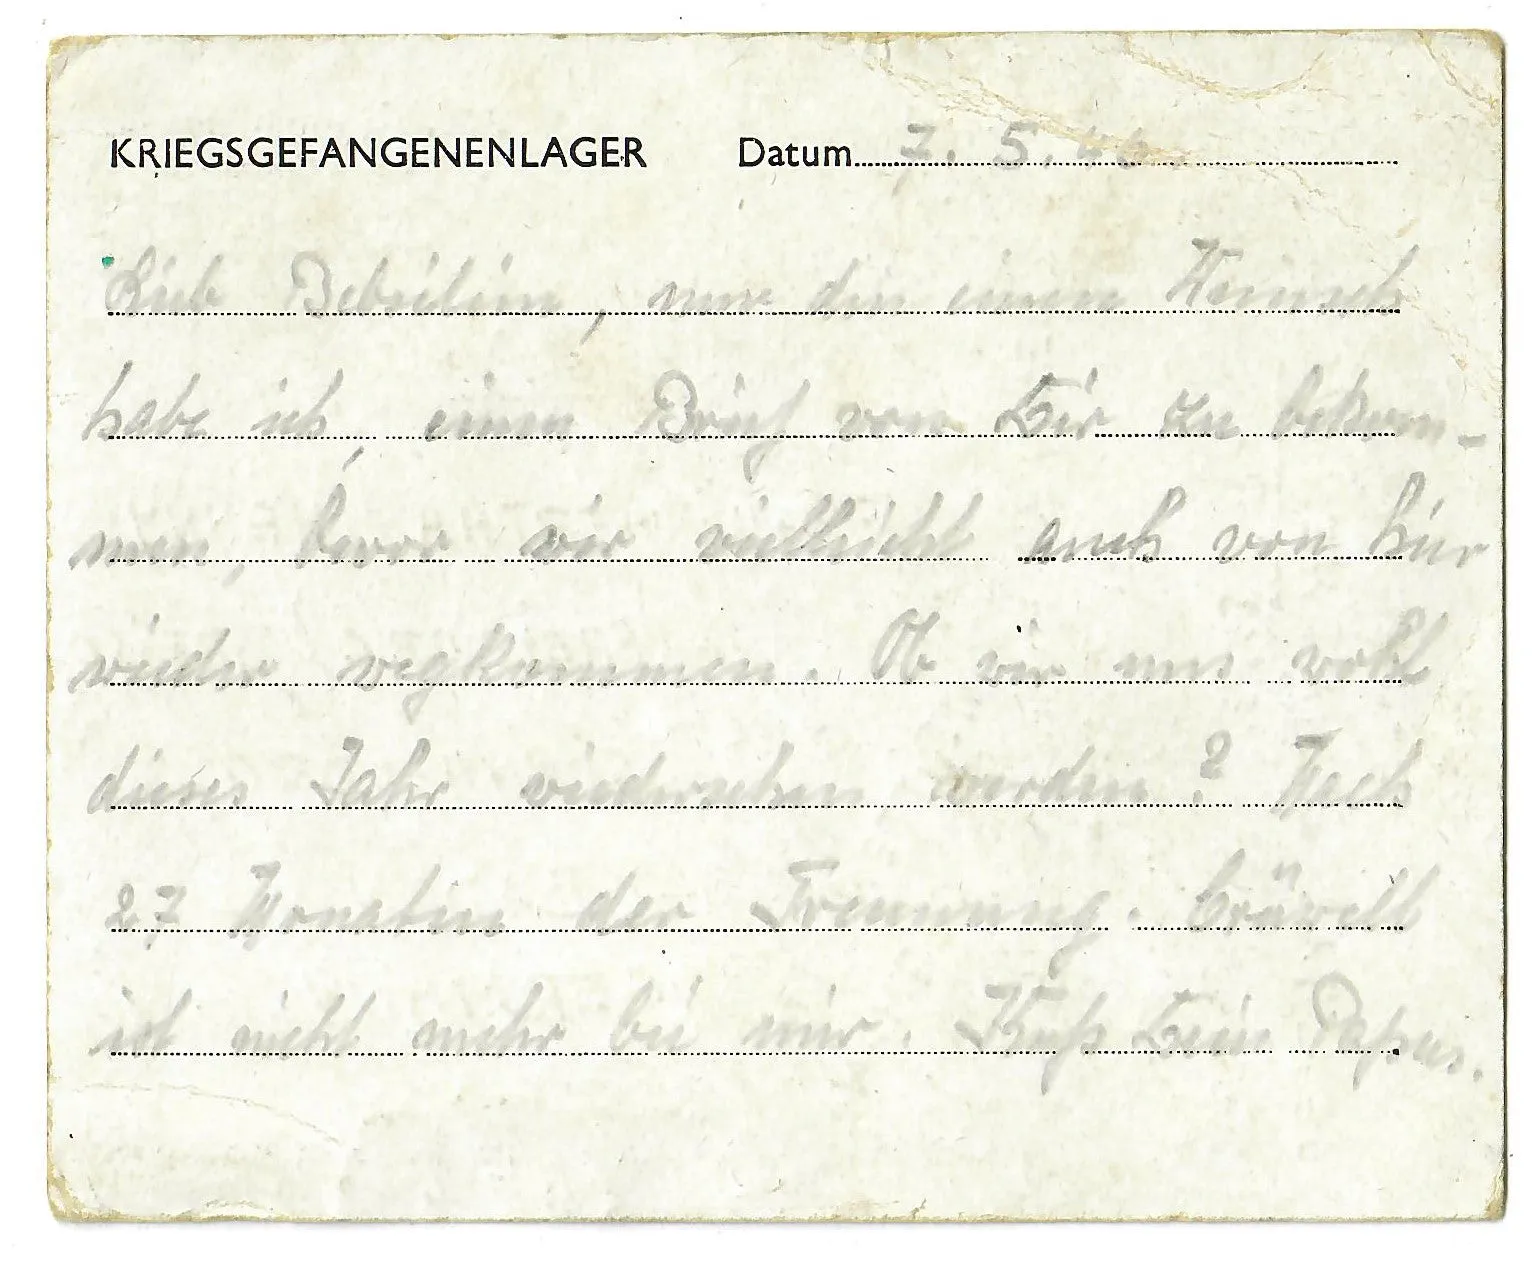 KRIEGSGEFANGENENLAGER Datum 7. 5. 46.
Lieb , nur den einen Wunsch
habe ich, einen Brief von Dir zu bekom-
men, bevor wir vielleicht auch von hier
wieder wegkommen. Ob wir uns wohl
dieses Jahr wiedersehen werden? Nach
27 Monaten der Trennung.
ist nicht mehr bei mir. Kuß Dein Papus.